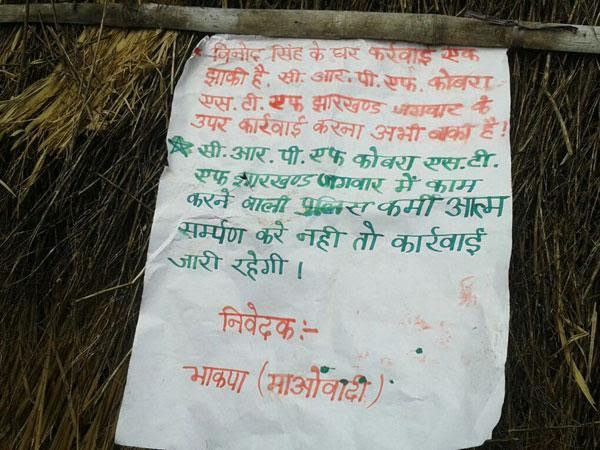 ★ विनोद सिंह के घर कर्रवाई एक
झाकी है. सी.आर.पी.एफ. कोबरा
एस.टी. एफ झारखण्ड जगवार के
उपर कार्रवाई करना अभी बाका है!
★ सी.आर.पी.एफ कोबरा एस.टी.
एफ झारखण्ड जगवार में काम
करने वाली पुलिस कर्मी आत्म
सर्म्पण करे नही तो कार्रवाई
जारी रहेगी।
निवेदक:-
भाकपा (माओवादी)